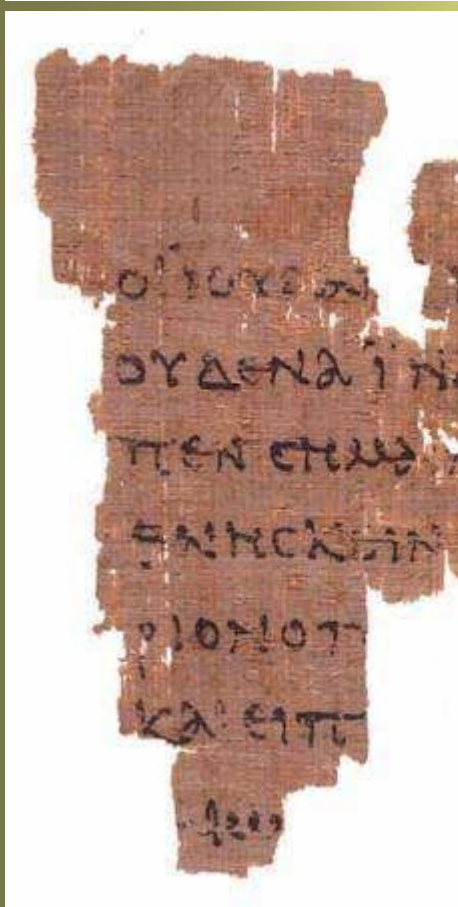 ΟΙ ΙΟΥΔΑΙ
ΟΥΔΕΝΑ ΪΝΑ
ΠΕΝ CΗΜΑ
ΘΝΗCΚΕΙΝ
ΡΙΟΝ Ο Π
ΚΑΙ ΕΙΠ